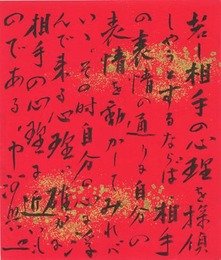 若し相手の心理を探偵
しやうとするならば、相手
の表情の通りを自分の
表情を動かしてみれば
いい、その時自分の心に浮
んで来る心理 確か
相手の心理に近いも
のである 中河與一